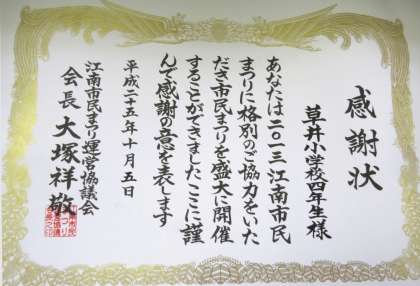 感謝状
草井小学校四年生様
あなたは二〇一三江南市民
まつりに格別のご協力をいた
だき市民まつりを盛大に開催
することができましたここに謹
んで感謝の意を表します
平成二十五年十月五日
江南市民まつり運営協議会
会長 大塚祥敬